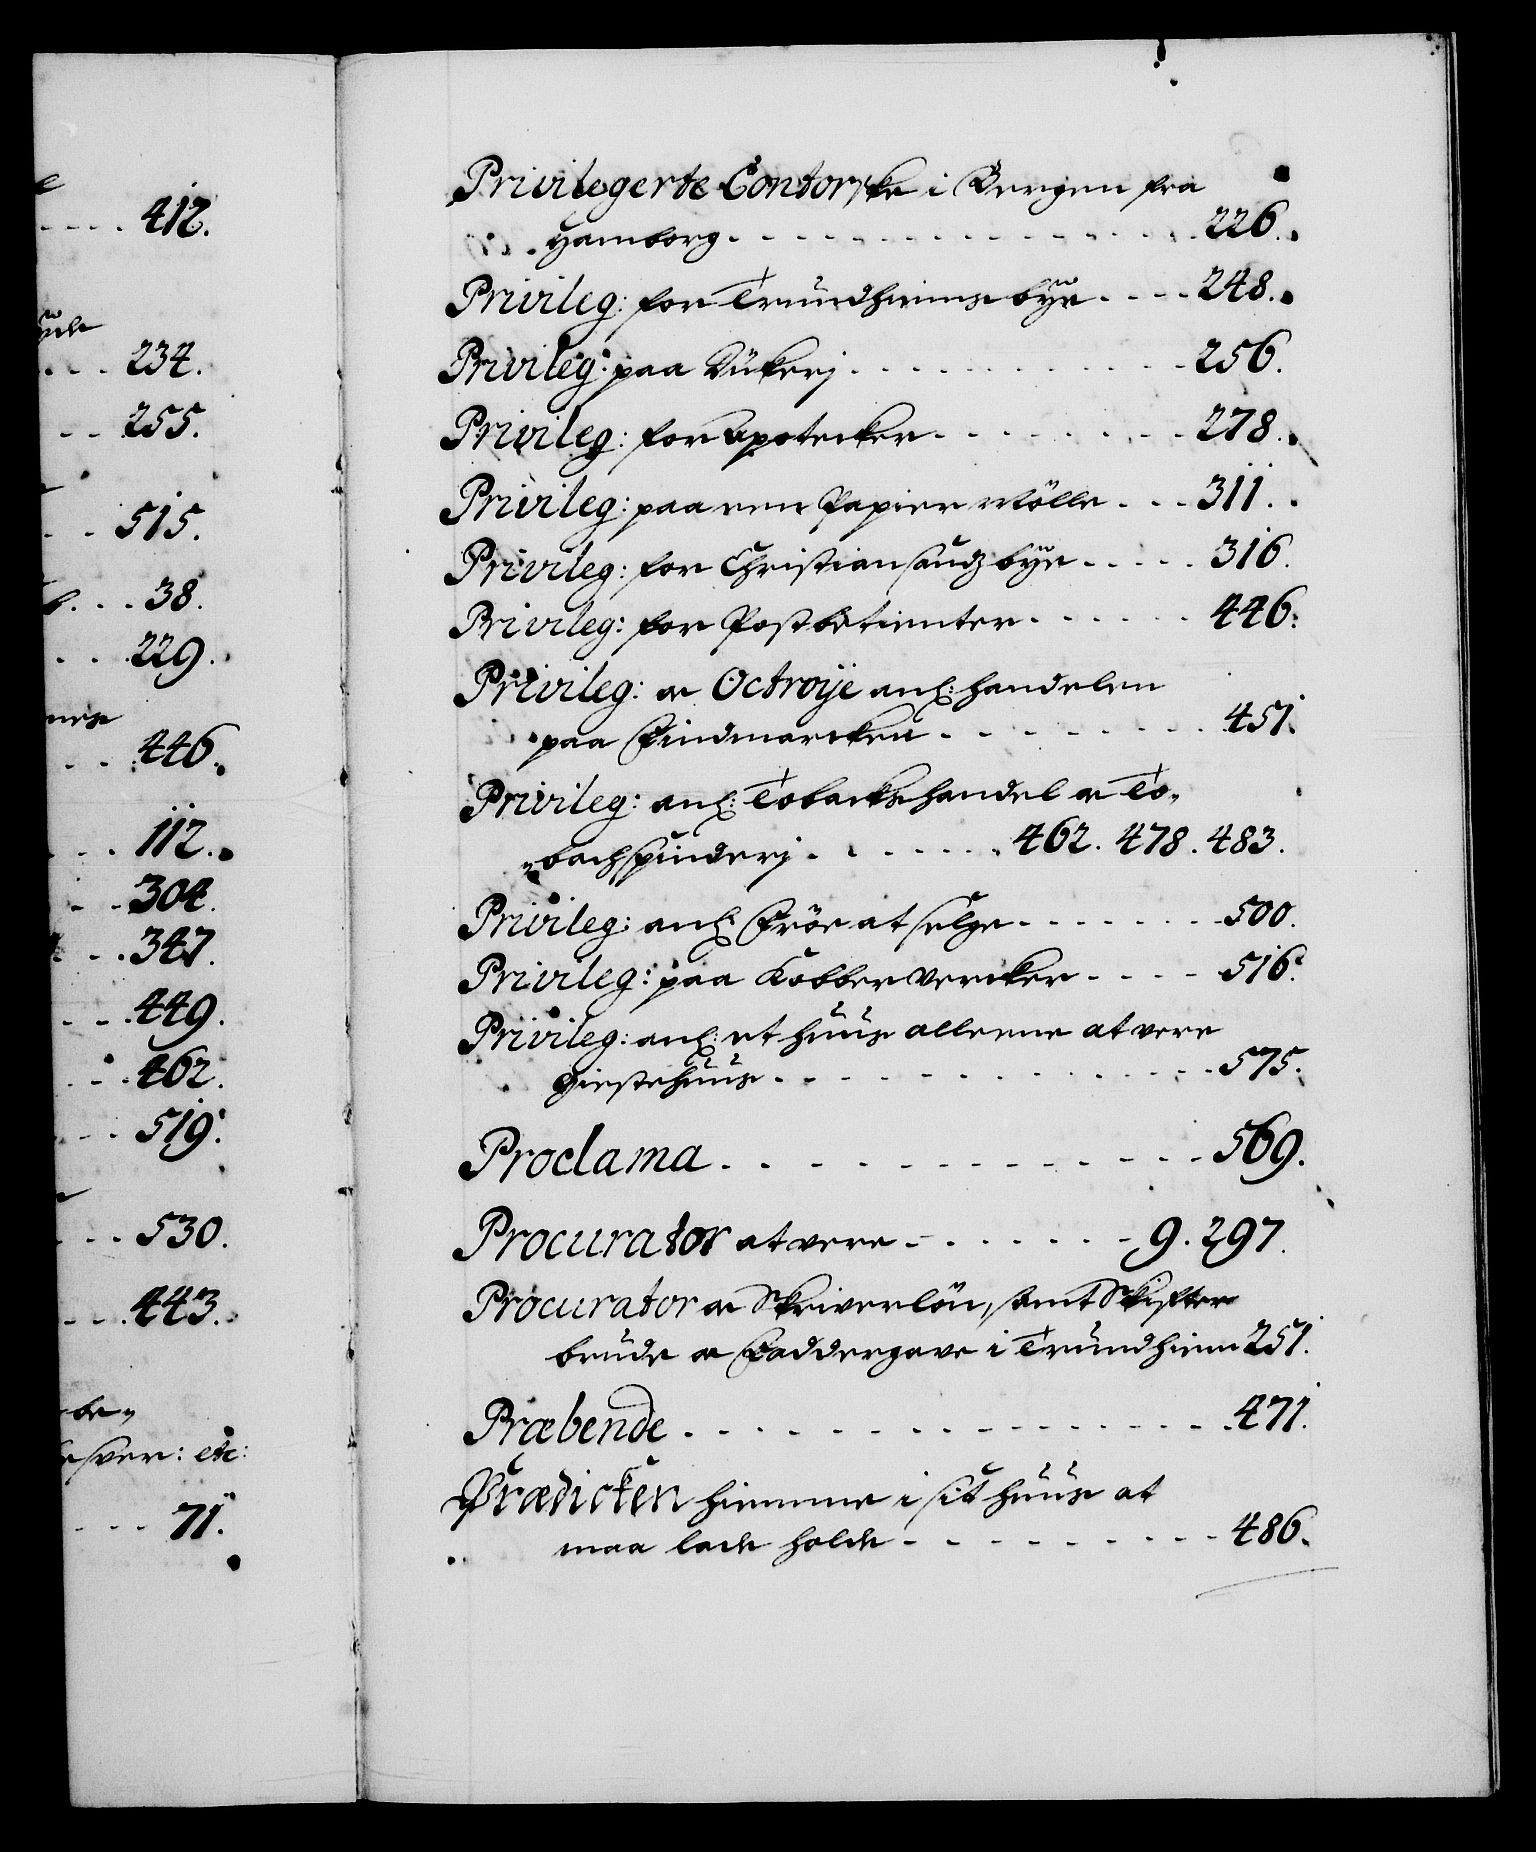 412.
234.
255.
515.
38.
229.
446.
112.
304.
347.
449.
462.
519.
530.
443.
be„
sver: etc:
71.
Privilegerte Contorske i Bergen fra
Hamborg 226.
Privileg: for Trundhiems bÿe 248.
Privileg: paa Dückerj 256.
Privileg: for Apotecker 278.
Privileg: paa een Papier Mölle 311.
Privileg: for Christiansandz bÿe 316.
Privileg: for Postbetienter 446.
Privileg: oc Octroÿe anl: handelen
paa Findmarcken 451.
Privileg: anl: Tobacks handel oc To„
„bachspinderj 462. 478. 483.
Privileg: anl: Fröe at selge 500.
Privileg: paa Kobber Vercker 516.
Privileg: anl: et huus alleene at vere
Giestehuus 575.
Proclama 569.
Procurator at vere 9. 297.
Procurator oc Skriverlön, samt Skifter
brude oc Faddergave i Trundhiem 251.
Præbende 471.
Prædicken hiemme i sit huus at
maa lade holde 486.